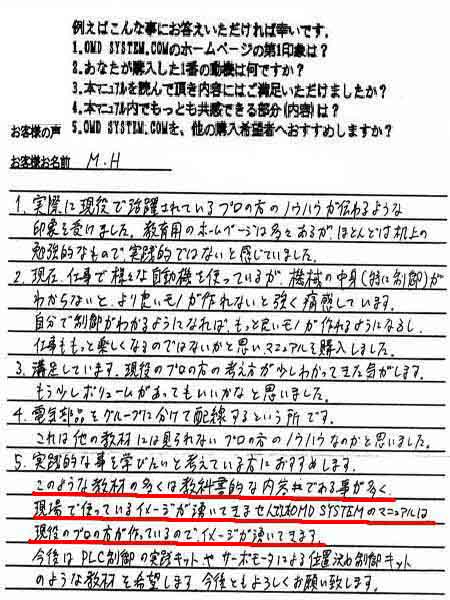 例えばこんな事にお答えいただければ幸いです．
1.OMD SYSTEM.COMのホームページの第1印象は？
2.あなたが購入した1番の動機は何ですか？
3.本マニュアルを読んで頂き内容にはご満足いただけましたか？
4.本マニュアル内でもっとも共感できる部分(内容)は？
お客様の声 5.OMD SYSTEM.COMを、他の購入希望者へおすすめしますか？
お客様お名前 M.H
1. 実際に現役で活躍されているプロの方のノウハウが伝わるような
印象を受けました。教育用のホームページは多々あるが、ほとんどは机上の
勉強的なもので、実践的ではないと感じていました。
2. 現在、仕事で様々な自動機を使っているが、機械の中身(特に制御)が
わからないと、より良いモノが作れないと強く痛感しています。
自分で制御がわかるようになれば、もっと良いモノが作れるようになるし、
仕事ももっと楽しくなるのではないかと思い、マニュアルを購入しました。
3. 満足しています。現役のプロの方の考え方が少しわかってきた気がします。
もう少しボリュームがあってもいいかなと思いました。
4. 電気部品をグループに分けて配線するという所です。
これは他の教材には見られないプロの方のノウハウなのかと思いました。
5. 実践的な事を学びたいと考えている方におすすめします。
このような教材の多くは教科書的な内容である事が多く、
現場で使っているイメージが湧いてきませんが、OMD SYSTEMのマニュアルは
現役のプロの方が作っているのでイメージが湧いてきます。
今後はPLC制御の実践キットやサーボモータによる位置決め制御キット
のような教材を希望します。今後ともよろしくお願い致します。